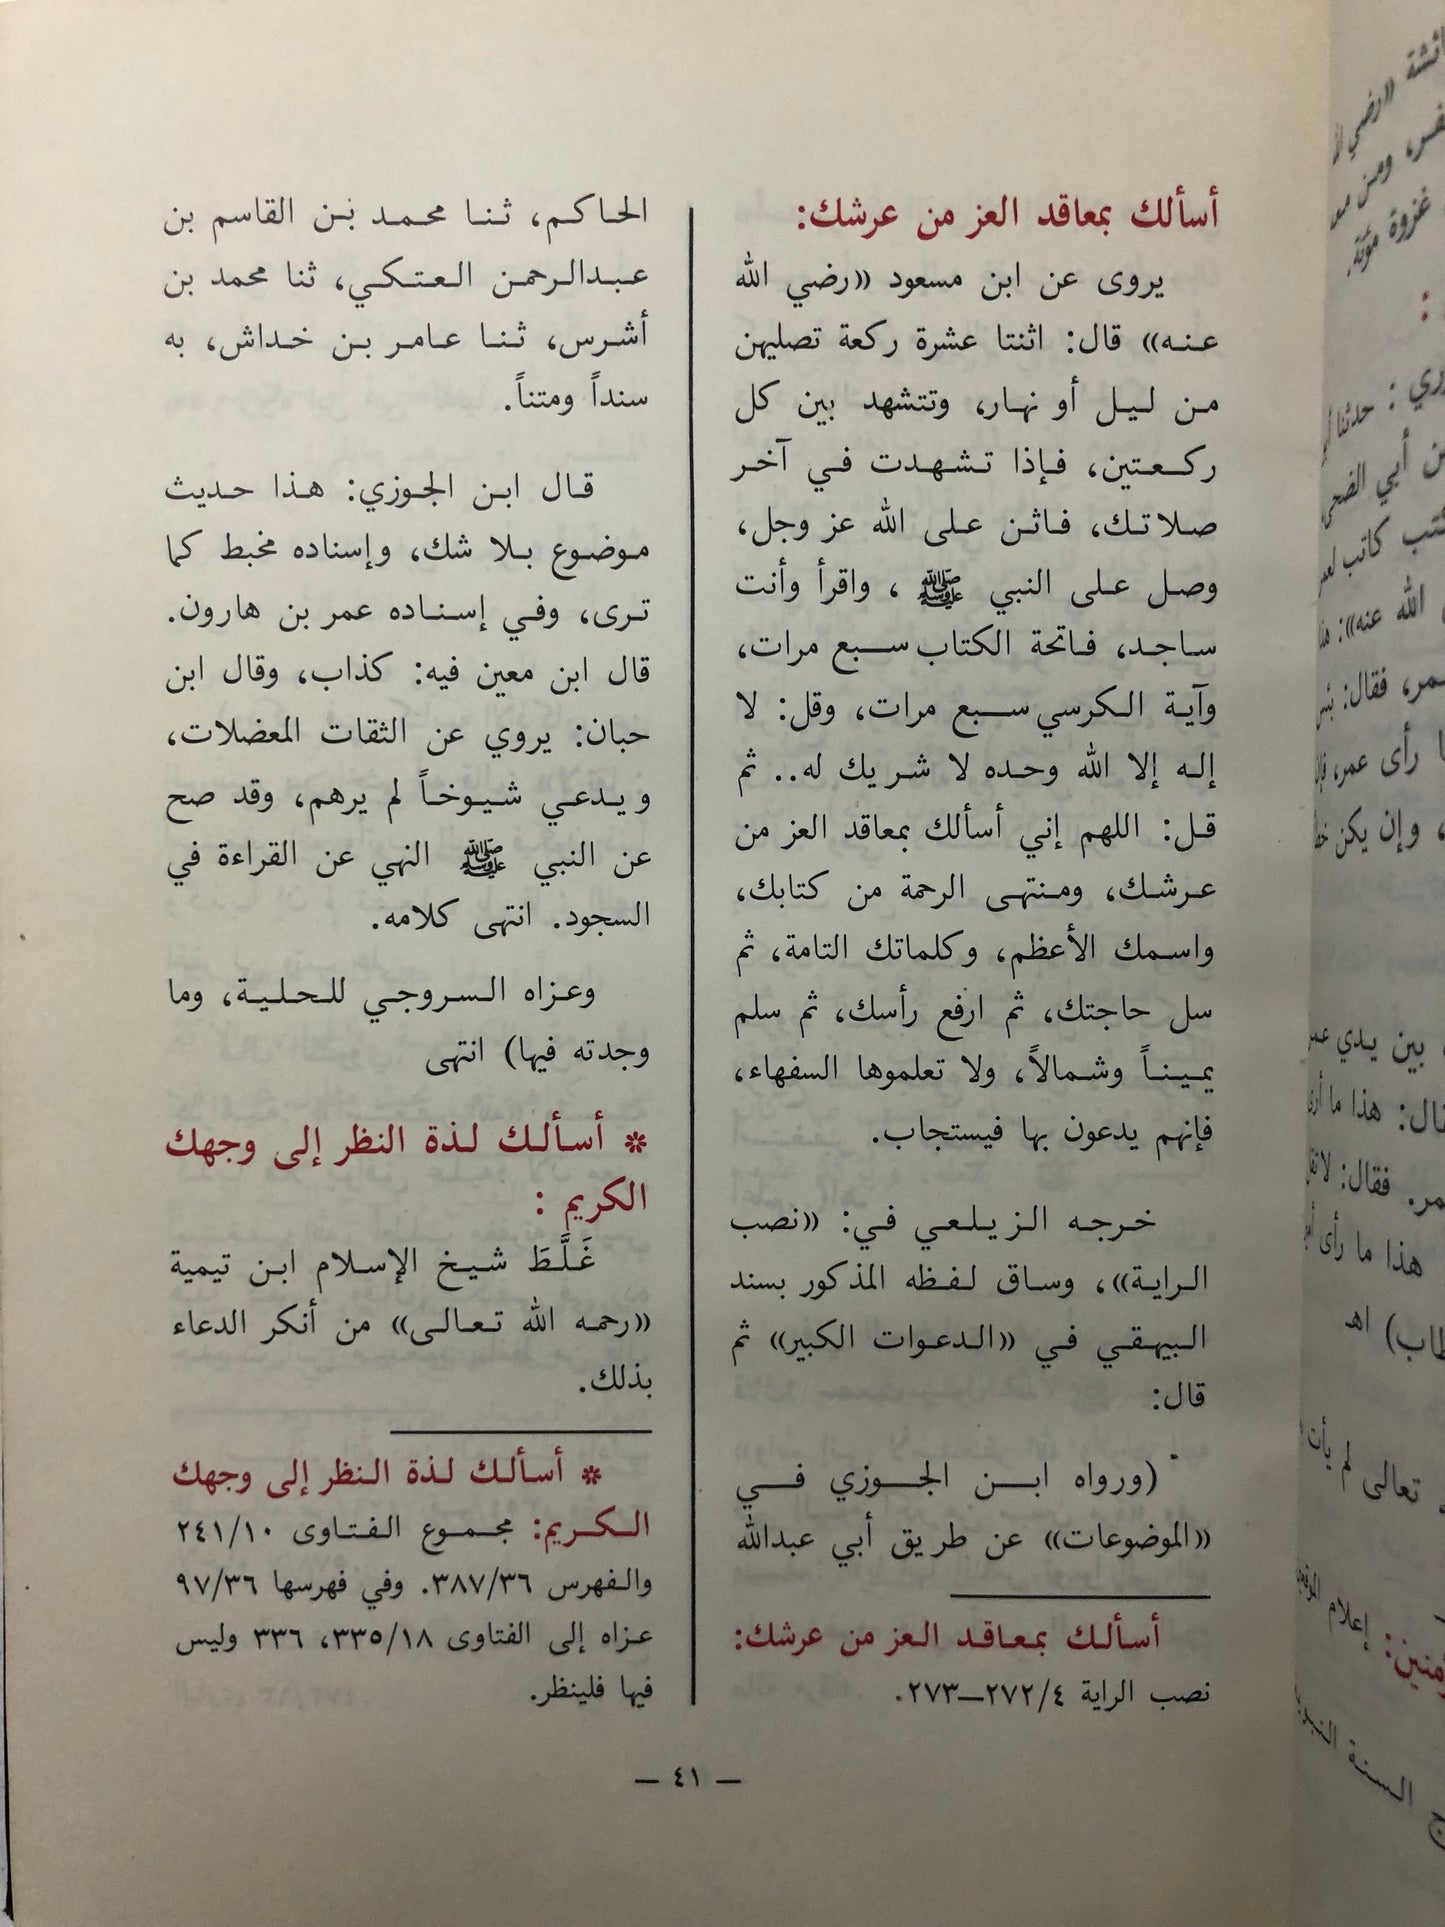 أسألك بمعاقد العز من عرشك:
يروى عن ابن مسعود «رضي الله
عنه» قال: اثنتا عشرة ركعة تصليهن
من ليل أو نهار، وتتشهد بين كل
ركعتين، فإذا تشهدت في آخر
صلاتك، فاثن على الله عز وجل،
وصل على النبي ﷺ ، واقرأ وأنت
ساجد، فاتحة الكتاب سبع مرات،
وآية الكرسي سبع مرات، وقل: لا
إله إلا الله وحده لا شريك له.. ثم
قل: اللهم إني أسألك بمعاقد العز من
عرشك، ومنتهى الرحمة من كتابك،
واسمك الأعظم، وكلماتك التامة، ثم
سل حاجتك، ثم ارفع رأسك، ثم سلم
يميناً وشمالاً، ولا تعلموها السفهاء،
فإنهم يدعون بها فيستجاب.
خرجه الزيلعي في: «نصب
الراية»، وساق لفظه المذكور بسند
البيهقي في «الدعوات الكبير» ثم
قال:
(ورواه ابن الجوزي في
«الموضوعات» عن طريق أبي عبدالله
أسألك بمعاقد العز من عرشك:
نصب الراية ٢٧٢/٤—٢٧٣.
الحاكم، ثنا محمد بن القاسم بن
عبدالرحمن العتكي، ثنا محمد بن
أشرس، ثنا عامر بن خداش، به
سنداً ومتناً.
قال ابن الجوزي: هذا حديث
موضوع بلا شك، وإسناده مخبط كما
ترى، وفي إسناده عمر بن هارون.
قال ابن معين فيه: كذاب، وقال ابن
حبان: يروي عن الثقات المعضلات،
ويدعي شيوخاً لم يرهم، وقد صح
عن النبي ﷺ النهي عن القراءة في
السجود. انتهى كلامه.
وعزاه السروجي للحلية، وما
وجدته فيها) انتهى
* أسألك لذة النظر إلى وجهك
الكريم :
غَلَّطَ شيخ الإسلام ابن تيمية
«رحمه الله تعالى» من أنكر الدعاء
بذلك.
* أسألك لذة النظر إلى وجهك
الكريم: مجموع الفتاوى ٢٤١/١٠
والفهرس ٣٨٧/٣٦. وفي فهرسها ٩٧/٣٦
عزاه إلى الفتاوى ٣٣٥/١٨، ٣٣٦ وليس
فيها فلينظر.
— ٤١ —